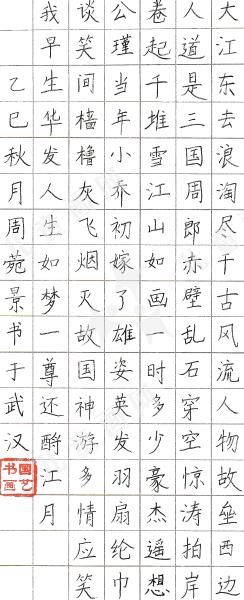 大江东去浪淘尽千古风流人物故垒西边
人道是三国周郎赤壁乱石穿空惊涛拍岸
卷起千堆雪江山如画一时多少豪杰遥想
公瑾当年小乔初嫁了雄姿英发羽扇纶巾
谈笑间樯橹灰飞烟灭故国神游多情应笑
我早生华发人生如梦一尊还酹江月
乙巳秋月周菀景书于武汉
国艺书画